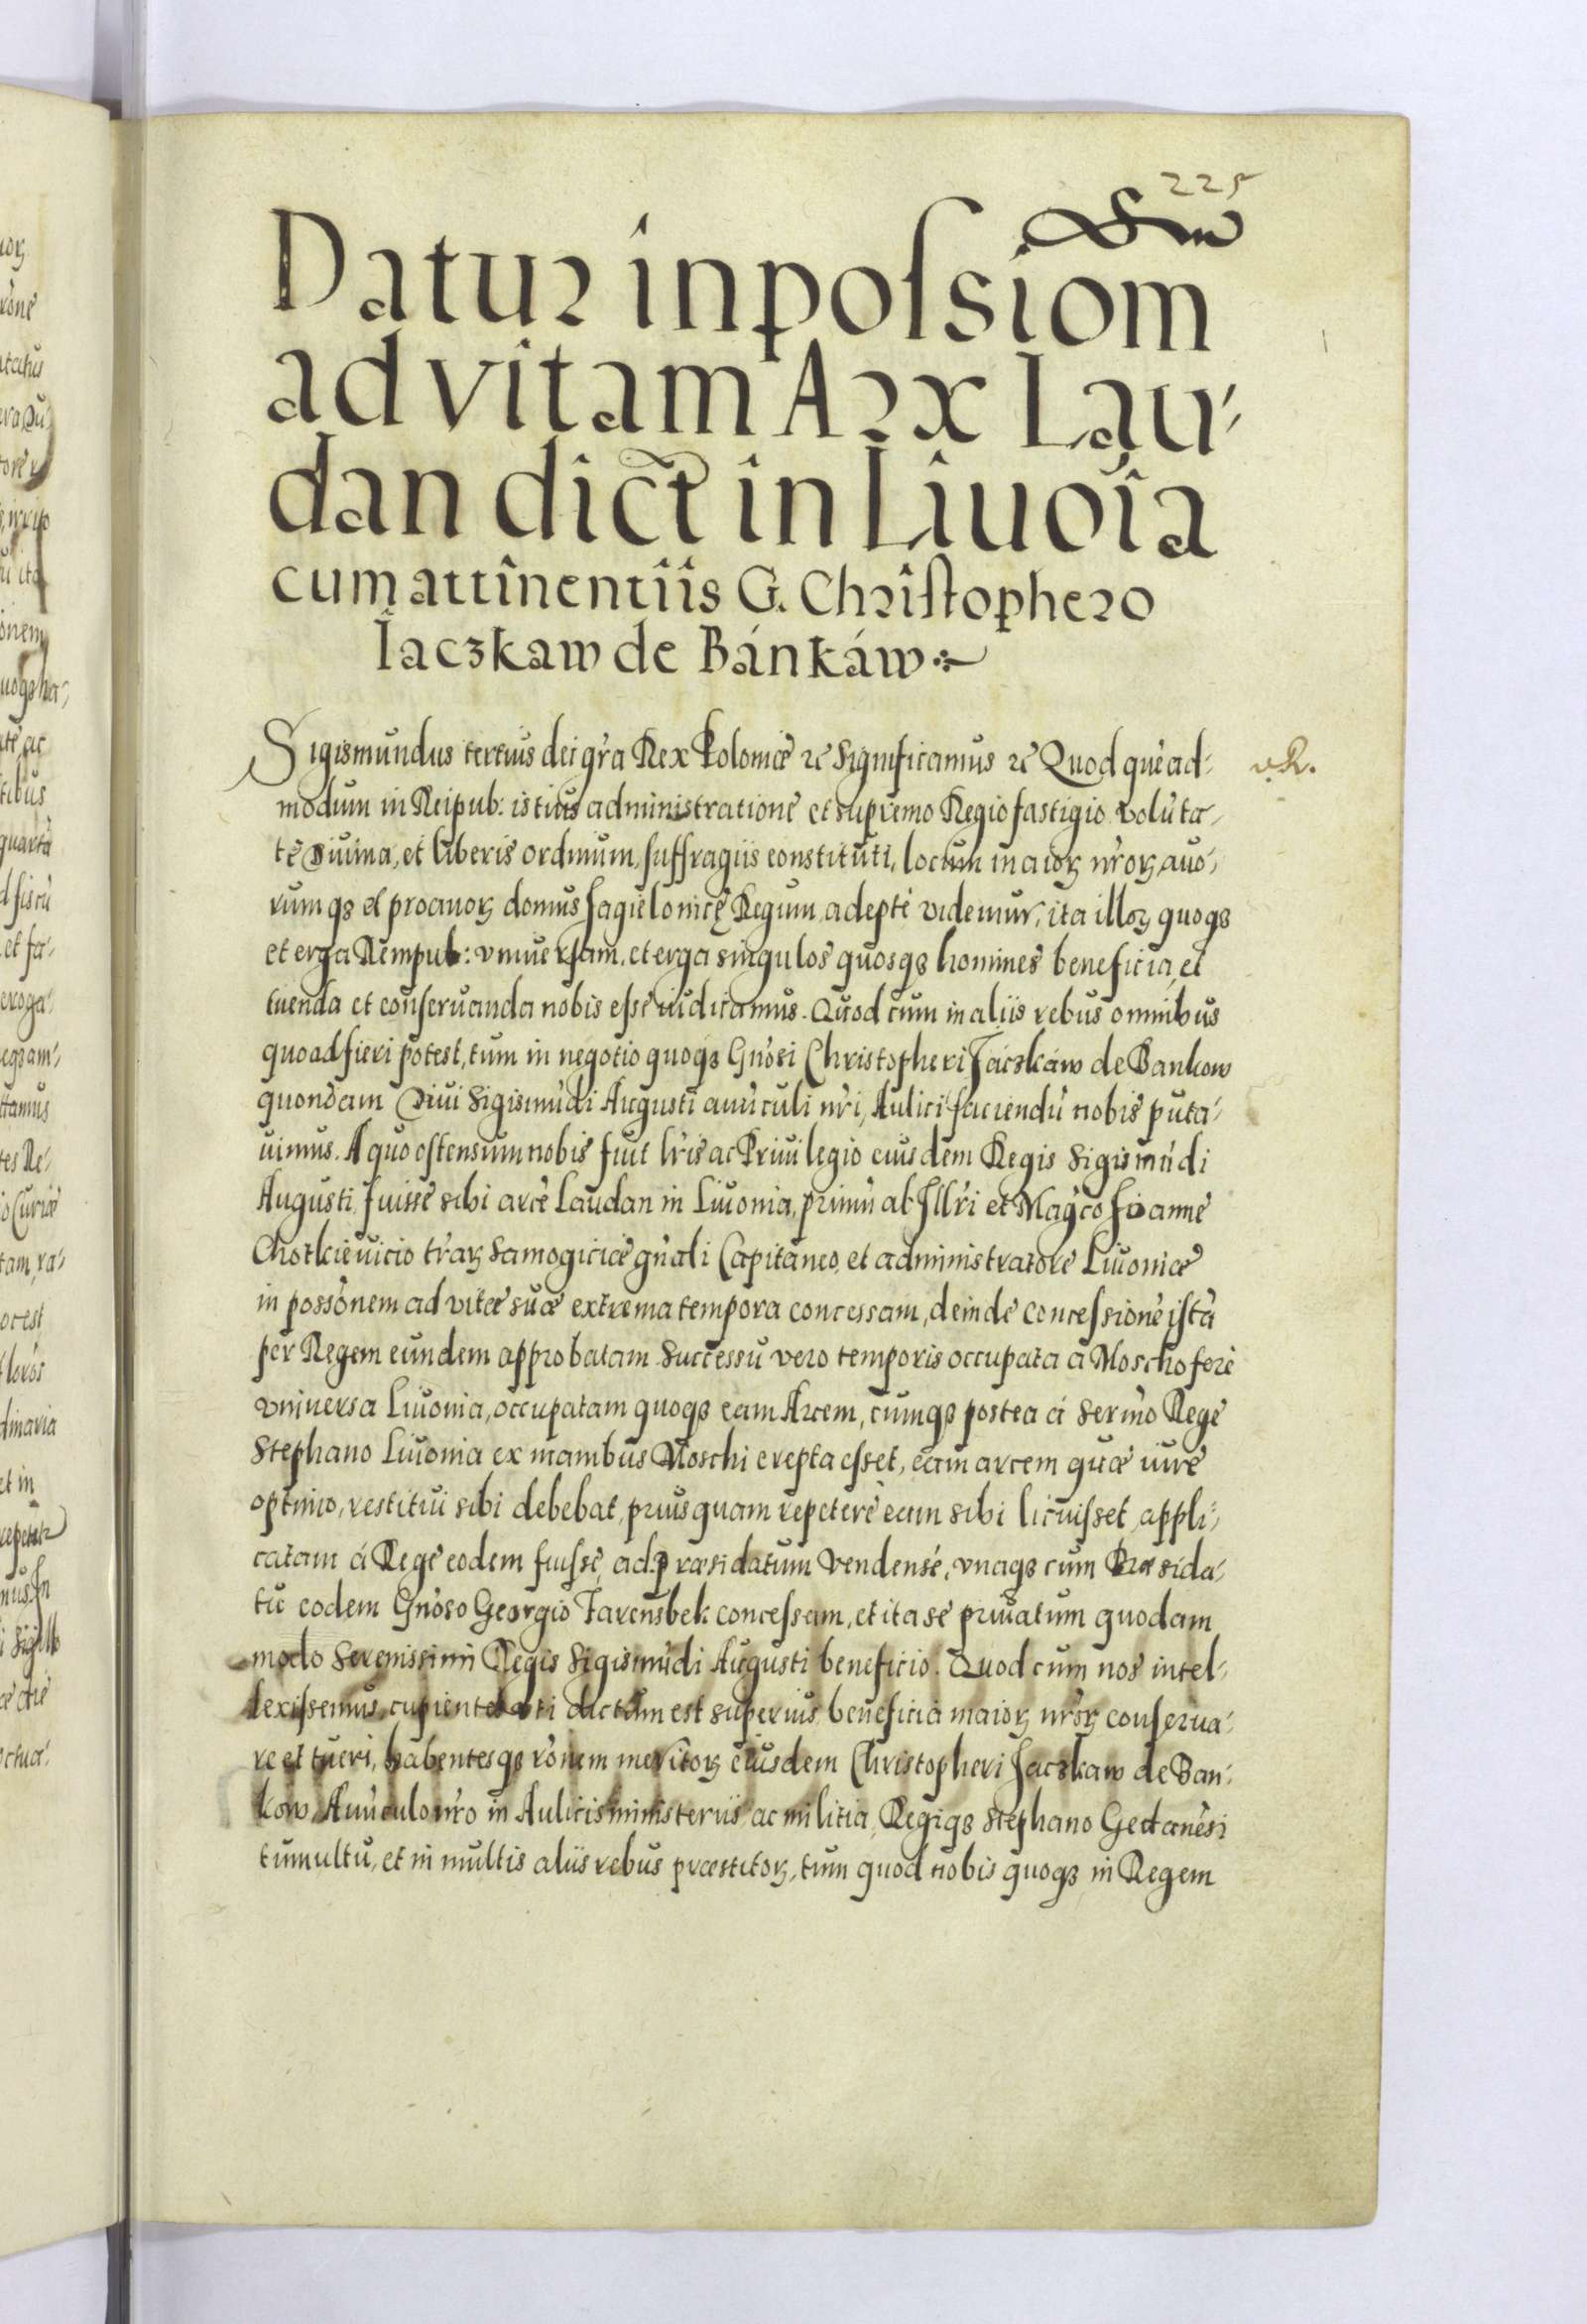 225
Datur in possiom
ad vitam Arx Lau-
dan dict in Liuoia
cum attinentiis G. Christophero
Iaczkaw de Bánkáw
Sigismundus tertius dei gra Rex Poloniæ &c Significamus &c Quod quèad-
modum in Reipub: istius administratione et supremo Regio fastigio volùta-
te Diuina, et liberis ordinum suffragiis constituti, locum maioꝝ nroꝝ auo-
rumqꝫ et proauoꝝ domus Jagielonicę Regum adepti videmur, ita illoꝝ quoqꝫ
et erga Rempub: vniuersam, et erga singulos quosqꝫ homines beneficia, et
tuenda et conseruanda nobis esse iudicamus. Quod cum in aliis rebus omnibus
quoad fieri potest, tum in negotio quoqꝫ Gnosi Christopheri Jaczkaw de Bankow
quondam Diui Sigismùdi Augusti auùculi nri, Aulici faciendù nobis puta-
uimus. A quo ostensum nobis fuit lris ac Priuilegio eiusdem Regis Sigismùdi
Augusti fuisse sibi arcè Laudan in Liuonia, primù ab Illri et Magco Joanne
Chotkieuicio traꝝ Samogiciæ gnali Capitaneo, et administratore Liuoniæ
in possonem ad vitæ suæ extrema tempora concessam, deinde concessionè istà
per Regem eundem approbatam. Successu vero temporis occupata à Moscho ferè
vniuersa Liuonia, occupatam quoqꝫ eam Arcem, cumqꝫ postea à Sermo Rege
Stephano Liuonia ex manibus Moschi erepta esset, eam arcem quæ iure
optimo, restitui sibi debebat, priusquam repetere eam sibi licuisset, appli-
catam à Rege eodem fuisse, ad præsidatum Vendensè, vnaqꝫ cum Præsida-
tu eodem Gnoso Georgio Farensbek concessam, et ita se priuatum quodam
modo Serenissimi Regis Sigismùdi Augusti beneficio. Quod cum nos intel-
lexissemus, cupientes vti dictum est superius beneficia maioꝝ nroꝝ conserua-
re et tueri, habentesqꝫ ronem meritoꝝ eiusdem Christopheri Jaczkaw de Ban-
kow Auùculo nro in Aulicis ministeriis ac militia, Regiqꝫ Stephano Gedanèsi
tumultu, et in multis aliis rebus præstitoꝝ, tum quod nobis quoqꝫ in Regem